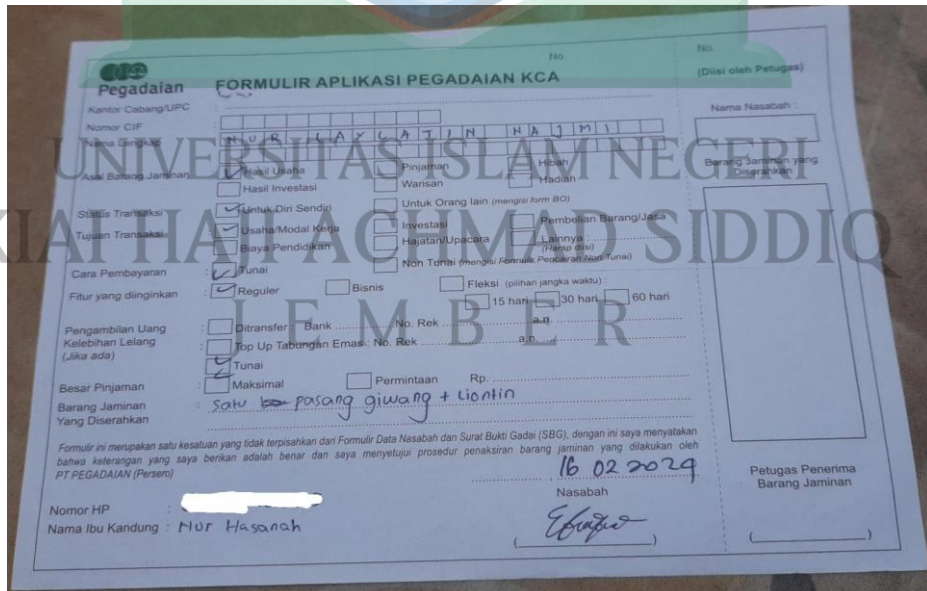 No.
No.
Pegadaian
FORMULIR APLIKASI PEGADAIAN KCA
(Diisi oleh Petugas)
Kantor Cabang/UPC :
Nomor CIF
Nama Nasabah :
Nama Lengkap : NUR LAYLATIN NAJMI
Asal Barang Jaminan : Hasil Usaha Pinjaman Hibah
Hasil Investasi Warisan Hadiah
Barang Jaminan yang
Diserahkan
Status Transaksi : Untuk Diri Sendiri Untuk Orang lain (mengisi form BO)
Tujuan Transaksi : Usaha/Modal Kerja Investasi Pembelian Barang/Jasa
Biaya Pendidikan Hajatan/Upacara Lainnya :
(Harap diisi)
Cara Pembayaran : Tunai Non Tunai (mengisi Formulir Pencairan Non Tunai)
Fitur yang diinginkan : Reguler Bisnis Fleksi (pilihan jangka waktu) :
15 hari 30 hari 60 hari
Pengambilan Uang : Ditransfer : Bank No. Rek a.n.
Kelebihan Lelang : Top Up Tabungan Emas : No. Rek a.n.
(Jika ada) Tunai
Besar Pinjaman : Maksimal Permintaan Rp.
Barang Jaminan : Satu pasang giwang + Liontin
Yang Diserahkan
Formulir ini merupakan satu kesatuan yang tidak terpisahkan dari Formulir Data Nasabah dan Surat Bukti Gadai (SBG), dengan ini saya menyatakan
bahwa keterangan yang saya berikan adalah benar dan saya menyetujui prosedur penaksiran barang jaminan yang dilakukan oleh
PT PEGADAIAN (Persero)
, 16 02 2024
Nasabah
Petugas Penerima
Barang Jaminan
Nomor HP :
Nama Ibu Kandung : Nur Hasanah
( )
( )
UNIVERSITAS ISLAM NEGERI
KIAI HAJI ACHMAD SIDDIQ
JEMBER